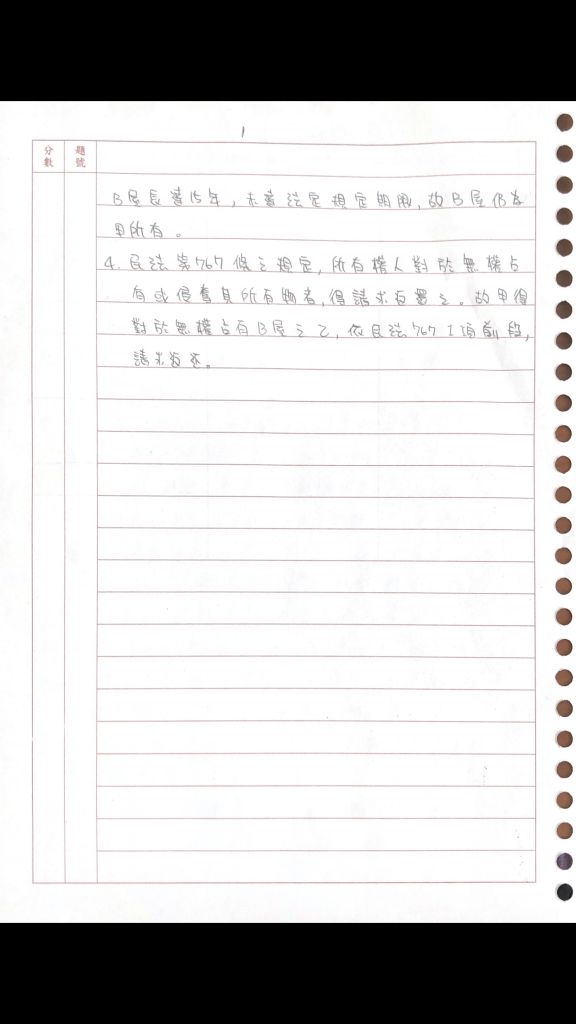 1
分數 題號
B屋長達15年，未達法定規定期限，故B屋仍為
甲所有。
4. 民法第767條之規定，所有權人對於無權占
有或侵奪其所有物者，得請求返還之。故甲得
對於無權占有B屋之乙，依民法767 I項前段，
請求返還。